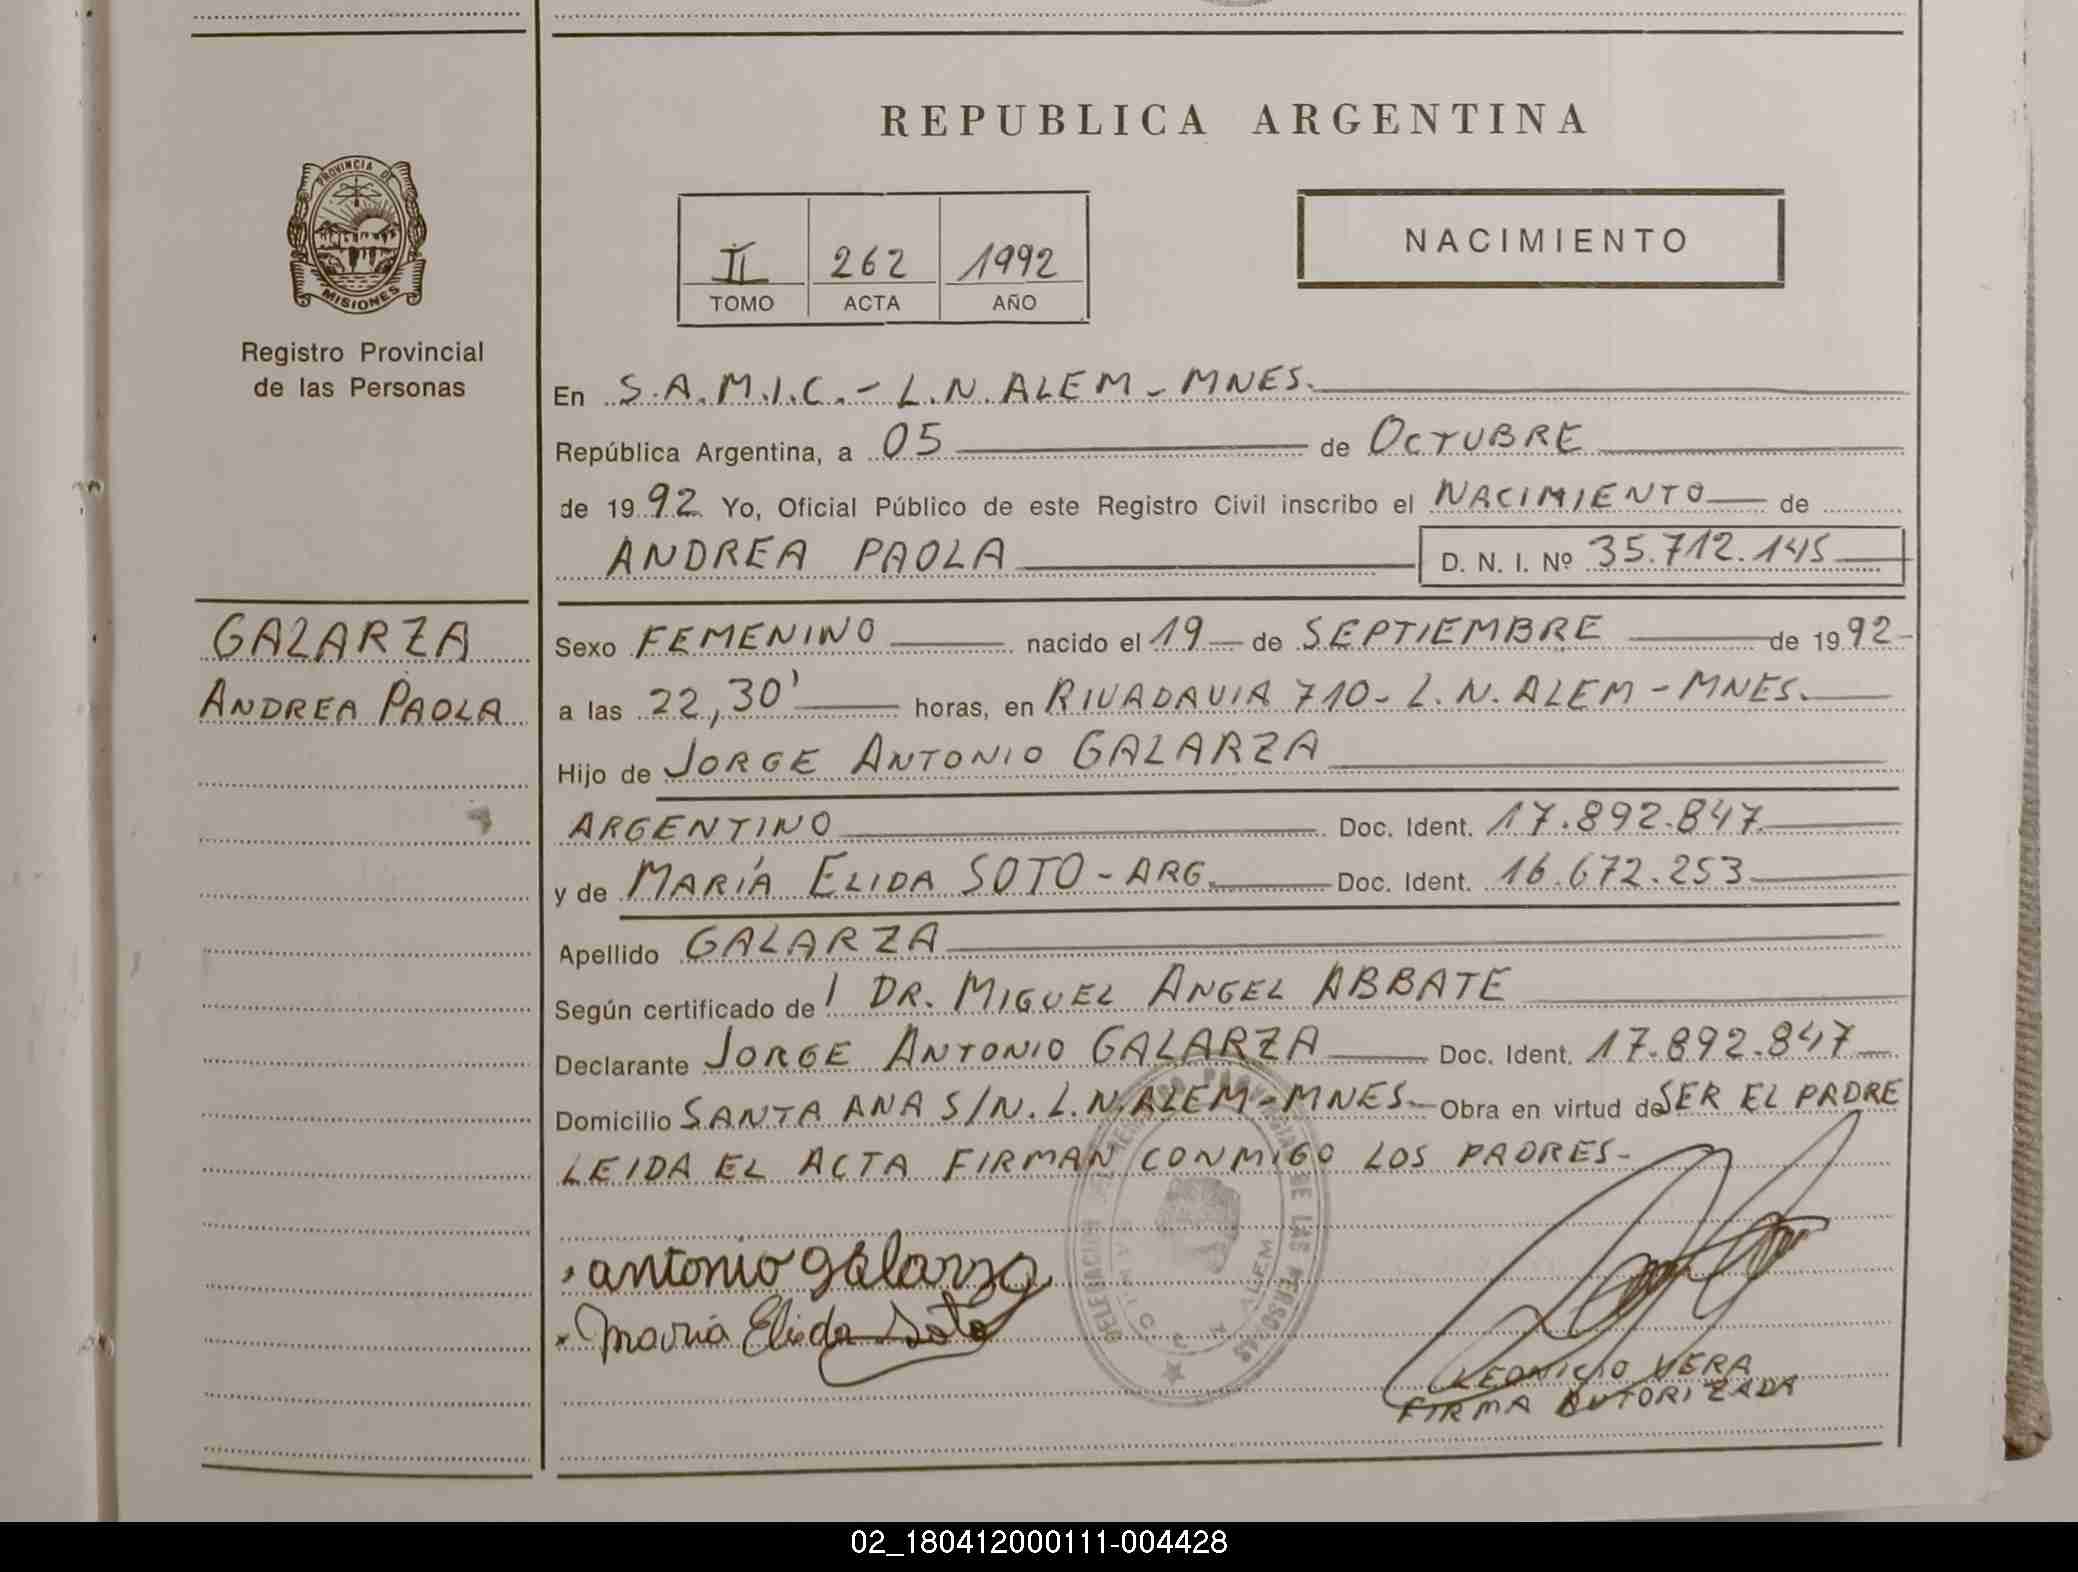 REPUBLICA ARGENTINA
PROVINCIA DE
MISIONES
Registro Provincial
de las Personas
II 262 1992
TOMO ACTA AÑO
NACIMIENTO
En S.A.M.I.C. - L.N. ALEM - MNES.
República Argentina, a 05 de OCTUBRE
de 1992 Yo, Oficial Público de este Registro Civil inscribo el NACIMIENTO de
ANDREA PAOLA D. N. I. Nº 35.712.145
GALARZA
ANDREA PAOLA
Sexo FEMENINO nacido el 19 de SEPTIEMBRE de 1992
a las 22,30' horas, en RIVADAVIA 710 - L.N. ALEM - MNES.
Hijo de JORGE ANTONIO GALARZA
ARGENTINO Doc. Ident. 17.892.847
y de MARÍA ELIDA SOTO - ARG. Doc. Ident. 16.672.253
Apellido GALARZA
Según certificado de l DR. MIGUEL ANGEL ABBATE
Declarante JORGE ANTONIO GALARZA Doc. Ident. 17.892.847
Domicilio SANTA ANA S/N. L.N. ALEM - MNES. Obra en virtud de SER EL PADRE
LEIDA EL ACTA FIRMAN CONMIGO LOS PADRES-
antonio galarza
maria Elida Soto
DE LAS PERSONAS
ALEM
LEONICIO VERA
FIRMA AUTORIZADA
02_180412000111-004428